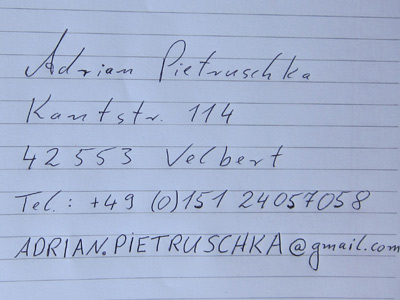 Adrian Pietruschka
Kantstr. 114
42553 Velbert
Tel.: +49 (0)151 24057058
ADRIAN.PIETRUSCHKA@gmail.com